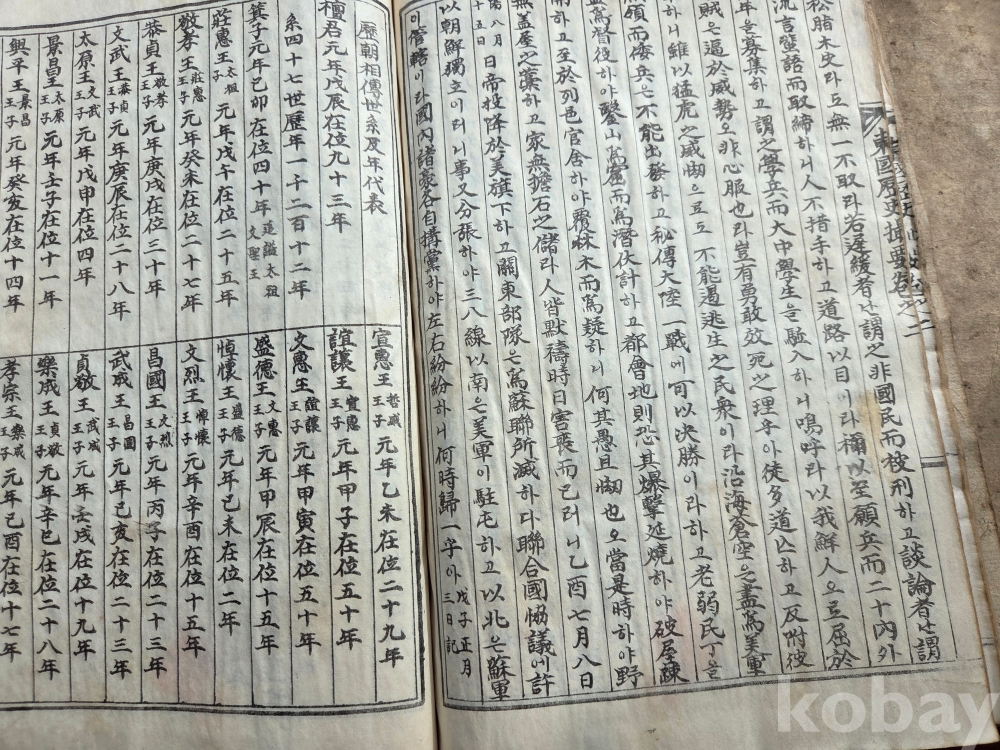 東國歷史撮要卷之二
松脂木史라도無一不取라若遲緩者는謂之非國民而被刑하고談論者는謂
流言蜚語而取締하니人不措手하고道路以目이라稱以至願兵而二十內外
年을募集하고謂之學兵而大中學生을驅入하니嗚呼라以我鮮人으로屈於
賊은逼於威勢오非心服也라豈有勇敢效死之理乎아徒多道亡하고反附彼
하니維以猛虎之威拗으로도不能遏逃生之民衆이라沿海倉空은盡爲美軍
領而倭兵은不能出發하고秘傳大陸一戰에可以決勝이라하고老弱民丁을
爲督役하야鑿山爲窟而爲潛伏計하고都會地則恐其爆擊延燒하야破屋疎
하고至於列邑官舍하야覆木而爲疑하니何其愚且拗也오當是時하야野
無盖屋之藁하고家無擔石之儲라人皆默禱時日害喪而已러니乙酉七月八日
陽八月十五日日帝投降於美旗下하고關東部隊은爲蘇聯所滅하다聯合國協議에許
以朝鮮獨立이러니事又分張하야三八線以南은美軍이駐屯하고以北은蘇軍
이管轄이라國內諸豪各自搆黨하야左右紛紛하니何時歸一字아戊子正月三日記
歷朝相傳世系及年代表
檀君元年戊辰在位九十三年
系四十七世歷年一千二百十二年
箕子元年已卯在位四十年追謚太祖文聖王
莊惠王太祖王子元年戊午在位二十五年
敬孝王莊惠王子元年癸未在位二十七年
恭貞王敬孝王子元年庚戌在位三十年
文武王恭貞王子元年庚辰在位二十八年
太原王文武王子元年戊申在位四年
景昌王太原王子元年壬子在位十一年
興平王景昌王子元年癸亥在位十四年
宣惠王哲威王子元年乙未在位二十九年
誼讓王宣惠王子元年甲子在位五十年
文惠王誼讓王子元年甲寅在位五十年
盛德王文惠王子元年甲辰在位十五年
悼懷王盛德王子元年已未在位二年
文烈王悼懷王子元年辛酉在位十五年
昌國王文烈王子元年丙子在位二十三年
武成王昌國王子元年已亥在位二十三年
貞敬王武成王子元年壬戌在位十九年
樂成王貞敬王子元年辛巳在位二十八年
孝宗王樂成王子元年已酉在位十七年
kobay